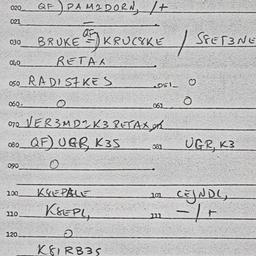 020 QF) PAM2DORN, /+
021 —
030 BRUKE QF=) KRUC8KE / S8ET3NE
040 RETAX
050 RADIS7KES 051 O
060 O 061 O
070 VER3MD2K3 RETAX
080 QF) UGR, K3S 081 UGR, K3
090 O
100 K8EPALE 101 CEJNDL,
110 K8EPL, 111 —/+
120 O
K8IRB3S